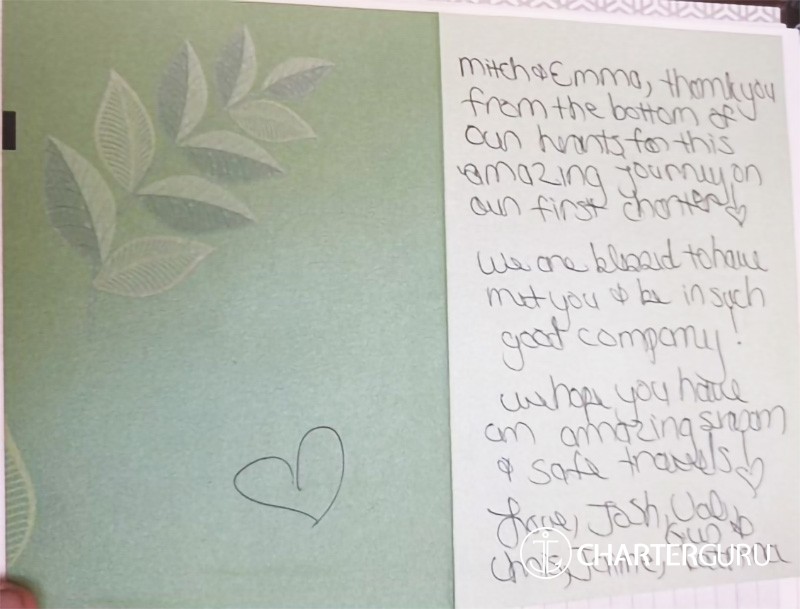 mitch & Emma, thank you
from the bottom of
our hearts for this
amazing journey on
our first charter
we are blessed to have
met you & be in such
good company!
we hope you have
an amazing season
& safe travels
Love, Josh,
&
Chris,
CHARTERGURU